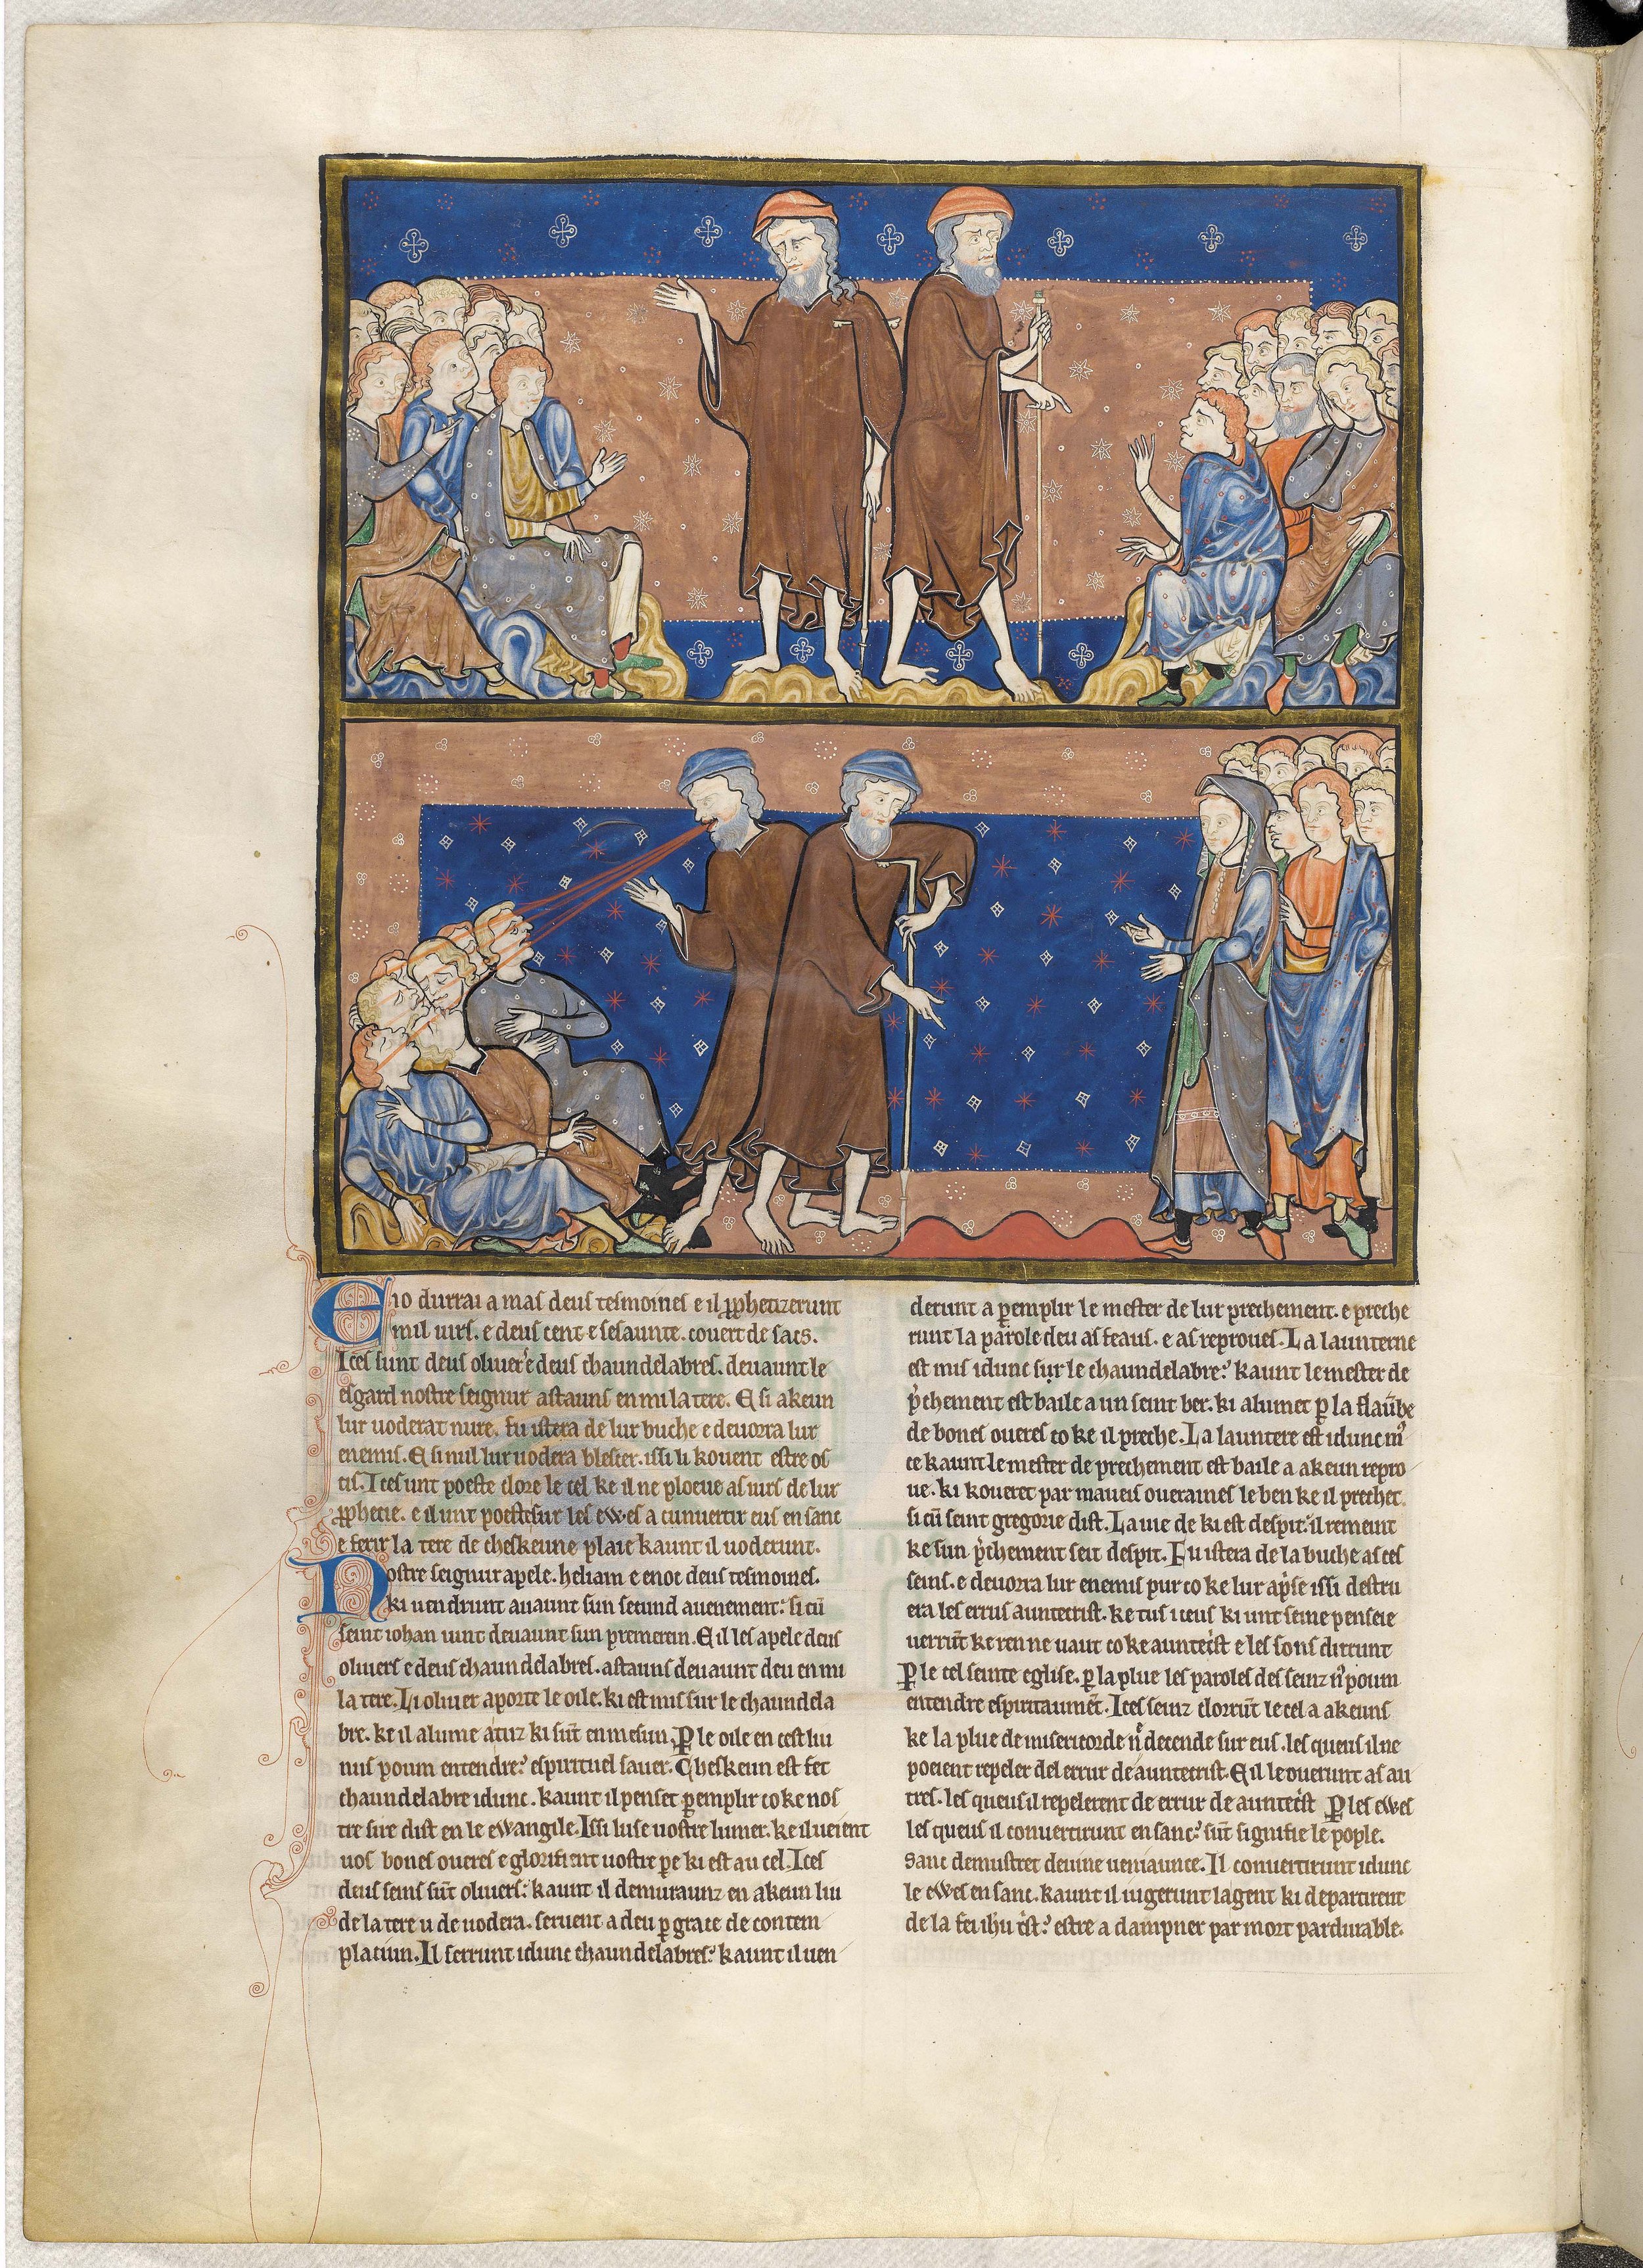 E io durrai a mas deus tesmoines e il ꝓphetizerunt
mil iurs. e deus cent e sesaunte. couert de sacs.
Ices sunt deus oliuers e deus chaundelabres. deuaunt le
esgard nostre seignur astauns en mi la tere. E si akeun
lur uoderat nure. fu istera de lur buche e deuorra lur
enemis. E si nul lur uodera blescer. issi li kouent estre oc
cis. Ices unt poeste clore le cel ke il ne ploeue as iurs de lur
ꝓphecie. e il unt poeste sur les ewes a cunuertir eus en sanc
e ferir la tere de cheskeune plaie kaunt il uoderunt.
Nostre seignur apele. heliam e enoc deus tesmoines.
ki uendrunt auaunt sun secund auenement: si cū
seint iohan uint deuaunt sun premerein. E il les apele deus
oliuers e deus chaundelabres. astauns deuaunt deu en mi
la tere. Li oliuer aporte le oile. ki est mis sur le chaundela
bre. ke il alume a tuz ki sūt en mesun. ꝑ le oile en cest liu
nus poum entendre: espirituel sauer. Cheskeun est fet
chaundelabre idunc. kaunt il penset ꝑemplir co ke nos
tre sire dist en le ewangile. Issi luise uostre lumer. ke il ueient
uos bones oueres e glorifient uostre ꝑe ki est au cel. Ices
deus seins sūt oliuers: kaunt il demuraunz en akeun liu
de la tere u de uodera. seruent a deu ꝑ grace de contem
placiun. Il serrunt idunc chaundelabres: kaunt il uen
derunt a ꝑemplir le mester de lur prechement. e preche
runt la parole deu as feaus. e as reproues. La launterne
est mis idunc sur le chaundelabre: kaunt le mester de
p̄chement est baile a un seint ber. ki alumet ꝑ la flaūbe
de bones oueres co ke il preche. La launtere est idunc m̄
ce kaunt le mester de prechement est baile a akeun repro
ue. ki koueret par maueis oueraines le ben ke il prechet.
si cū seint gregorie dist. La uie de ki est despit: il remeint
ke sun p̄chement seit despit. Fu istera de la buche as ces
seins. e deuorra lur enemis pur co ke lur ap̄se issi destru
era les errus auntecrist. ke tus iceus ki unt seine penseie
uerrūt ke ren ne uaut co ke auntec̄st e les sons dirrunt
ꝑ le cel seinte eglise. ꝑ la plue les paroles des seinz n̄ poum
entendre espiritaumēt. Ices seinz clorrūt le cel a akeuns
ke la plue de misericorde n̄ decende sur eus. les queus il ne
poeient repeler del errur de auntecrist. E il le ouerunt as au
tres. les queus il repelerent de errur de auntec̄st ꝑ les ewes
les queus il conuertirunt en sanc: sūt signifie le pople.
sanc demustret deuine ueniaunce. Il conuertirunt idunc
le ewes en sanc. kaunt il iugerunt la gent ki departirent
de la fei ihū c̄st: estre a dampner par mort pardurable.